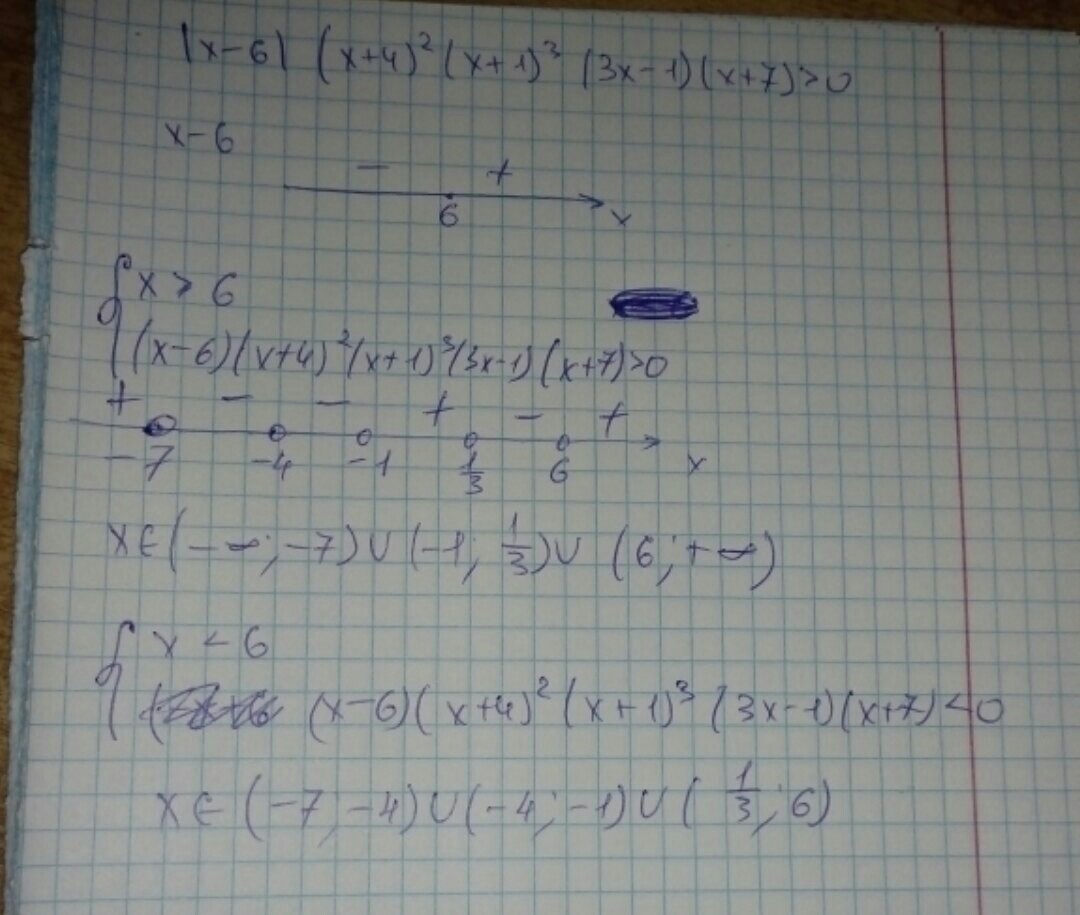 |x-6| (x+4)² (x+1)³ (3x-1)(x+7)>0
x-6
- +
6 x
{ x > 6
(x-6)(x+4)²(x+1)³(3x-1)(x+7)>0
+ - - + - +
-7 -4 -1 1/3 6 x
x∈(-∞;-7)∪(-1; 1/3)∪ (6;+∞)
{ x < 6
(x-6)(x+4)²(x+1)³(3x-1)(x+7)<0
x∈ (-7;-4)∪(-4;-1)∪( 1/3;6)